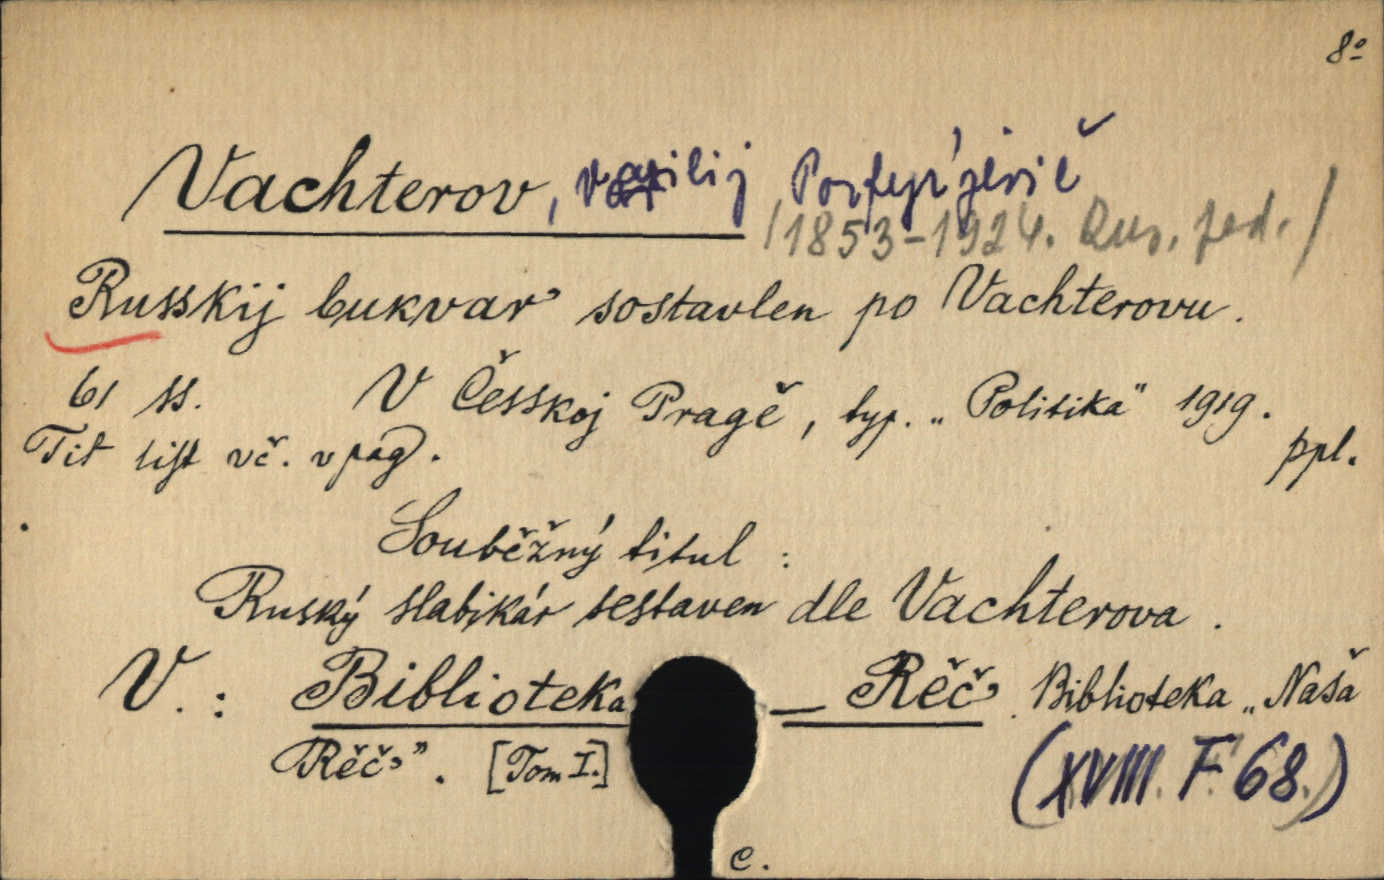 8º
Vachterov, Vasilij Porfyr'jevič
/1853-1924. Rus. ped./
Russkij bukvar' sostavlen po Vachterovu.
61 ss. V Češskoj Pragě, typ. „Politika" 1919.
Tit list vč. v pag. ppl.
Souběžný titul :
Ruský slabikár sestaven dle Vachterova.
V. : Biblioteka — Rěč' . Biblioteka „Naša
Rěč'". [Tom I.]
(XVIII. F 68.)
c.